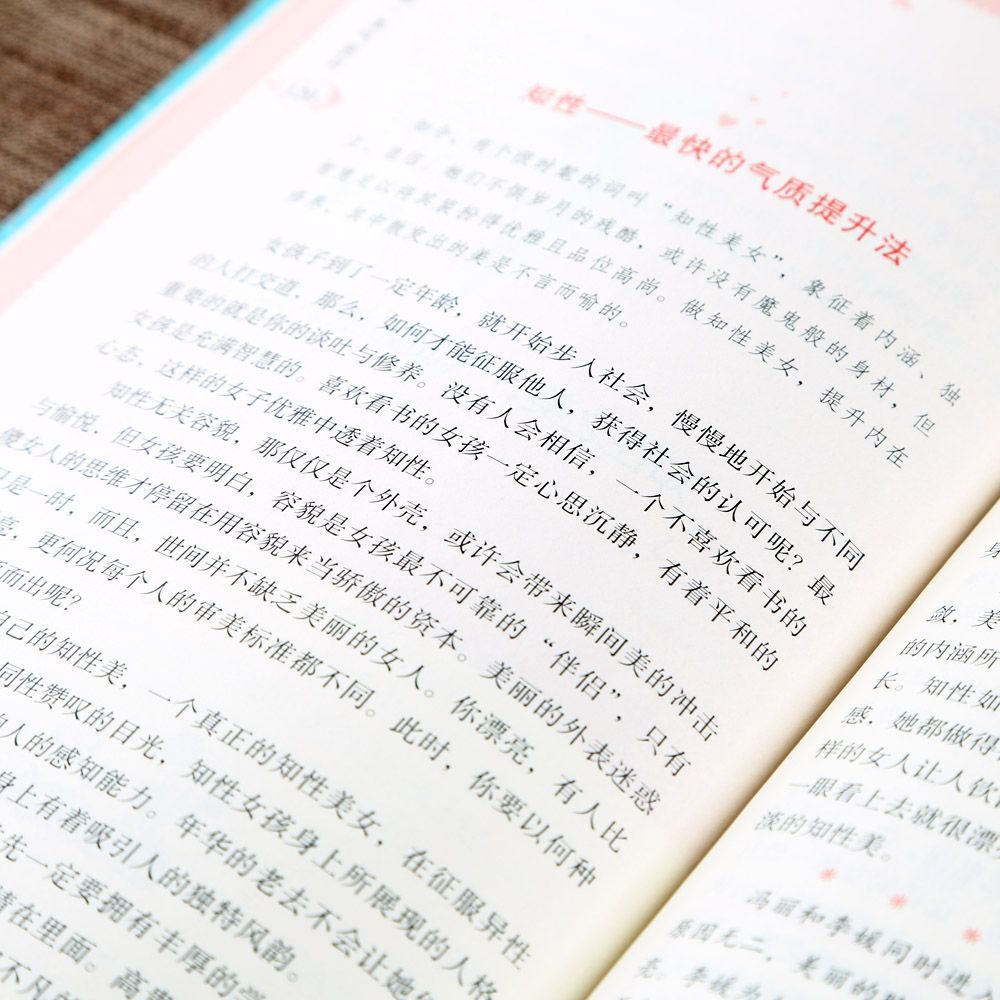 知性——最快的气质提升法
如今，有个很时髦的词叫“知性美女”，象征着内涵、独
立、自信，她们不惧岁月的残酷，或许没有魔鬼般的身材，但
智慧足以将其装扮得优雅且品位高尚。做知性美女，提升内在
修养，其中散发出的美是不言而喻的。
女孩子到了一定年龄，就开始步入社会，慢慢地开始与不同
的人打交道，那么，如何才能征服他人，获得社会的认可呢？最
重要的就是你的谈吐与修养。没有人会相信，一个不喜欢看书的
女孩是充满智慧的。喜欢看书的女孩一定心思沉静，有着平和的
心态，这样的女子优雅中透着知性。
知性无关容貌，那仅仅是个外壳，或许会带来瞬间美的冲击
与愉悦，但女孩要明白，容貌是女孩最不可靠的“伴侣”，只有
傻女人的思维才停留在用容貌来当骄傲的资本。美丽的外表迷惑
只是一时，而且，世间并不缺乏美丽的女人。你漂亮，有人比
亮，更何况每个人的审美标准都不同。此时，你要以何种
而出呢？
自己的知性美，一个真正的知性美女，在征服异性
同性赞叹的目光，知性女孩身上所展现的人格
人的感知能力。年华的老去不会让她
身上有着吸引人的独特风韵。
先一定要拥有丰厚的学
在里面。高贵
不凡的
敛，美
的内涵所
长。知性如
感，她都做得
样的女人让人钦
一眼看上去就很漂
淡的知性美。
冯丽和李媛同时进入
原因无二，美丽的
亮。李媛为